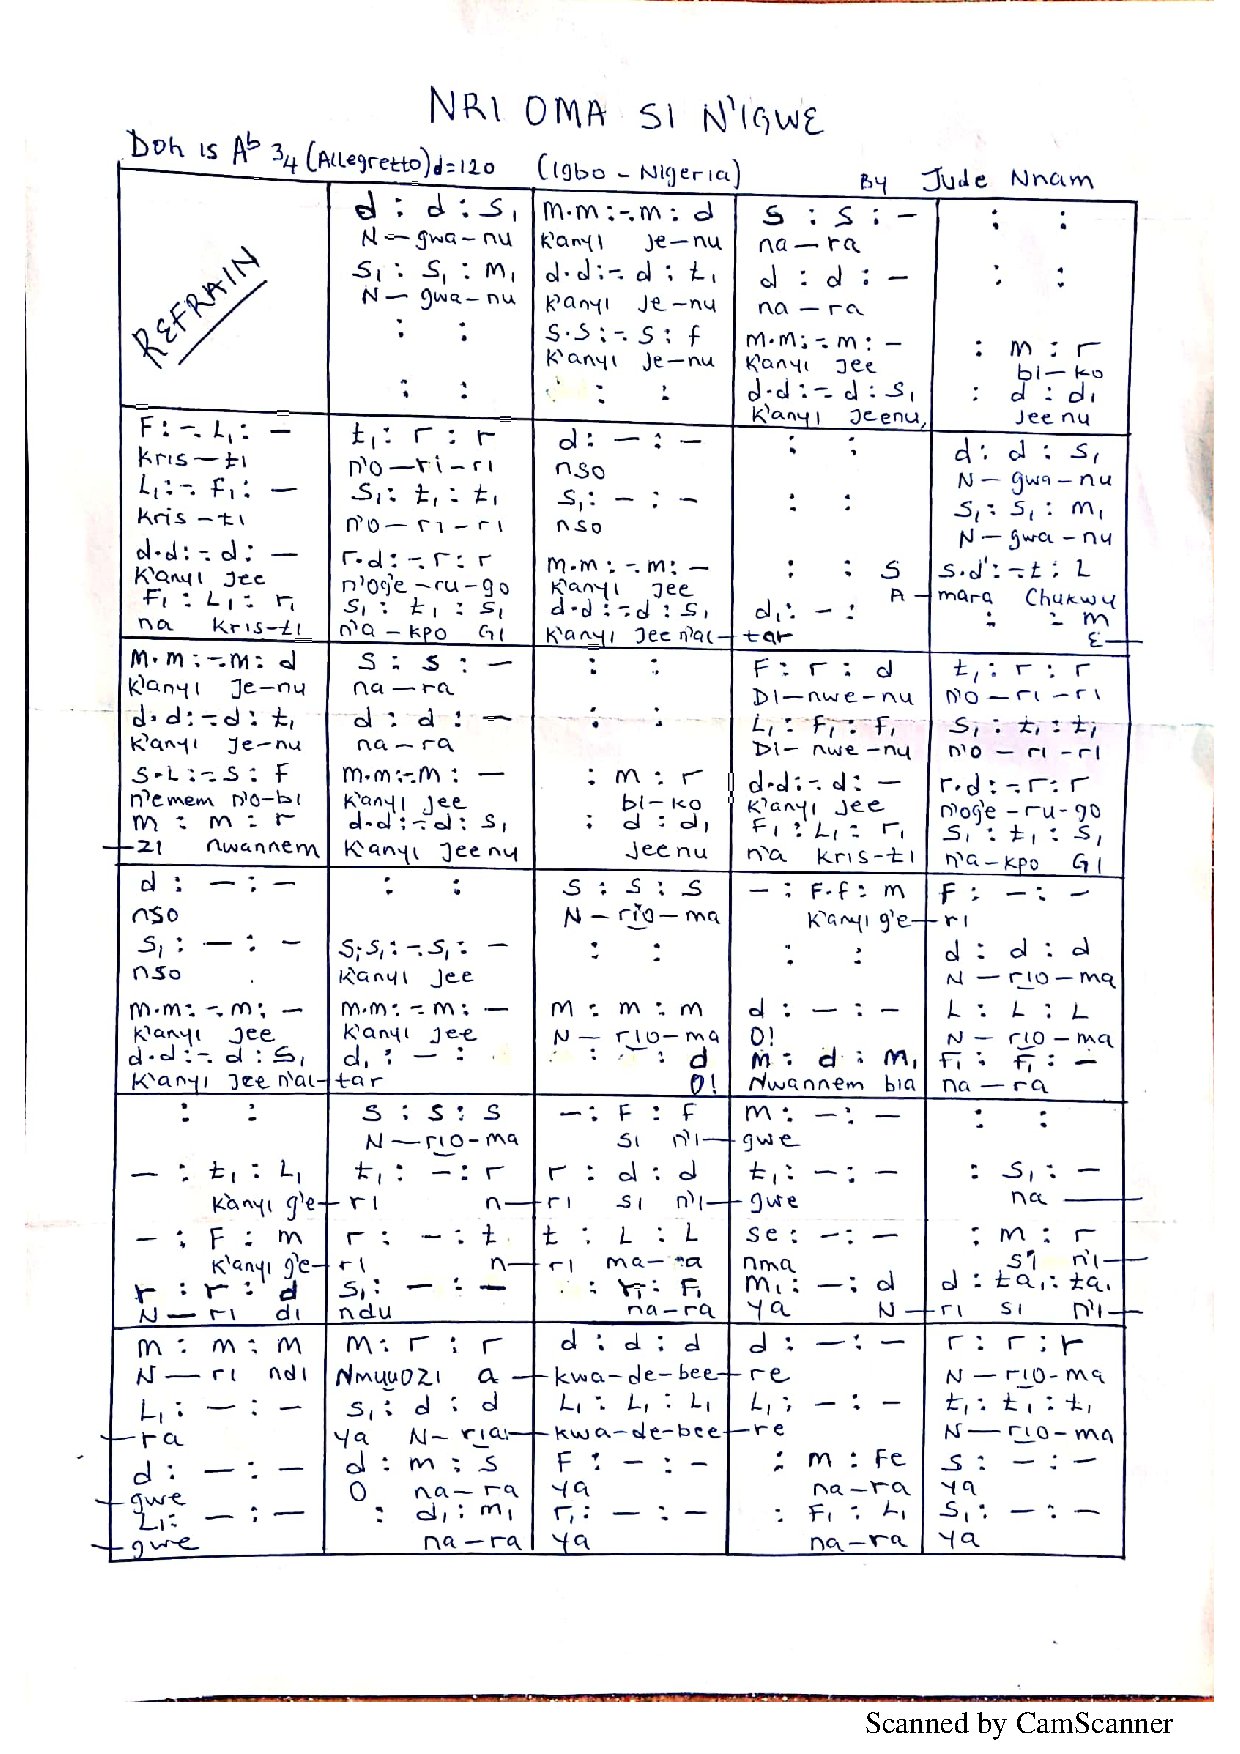 NRI OMA SI N'IGWE
Doh is Ab 3/4 (Allegretto) d=120 (Igbo - Nigeria) By Jude Nnam
REFRAIN
d : d : s, | m.m :-.m : d | s : s : - | : :
N - gwa - nu | K'anyi je - nu | na - ra
s, : s, : m, | d.d :-. d : t, | d : d : - | : :
N - gwa - nu | K'anyi je - nu | na - ra
: : | s.s :-. s : f | m.m :-. m : - | : m : r
K'anyi je - nu | K'anyi jee | bi - ko
: : | : : | d.d :-. d : s, | : d : d,
K'anyi jeenu, | jee nu
F :-. L, : - | t, : r : r | d : - : - | : : | d : d : s,
Kris - ti | n'o - ri - ri | nso | N - gwa - nu
L, :-. f, : - | s, : t, : t, | s, : - : - | : : | s, : s, : m,
Kris - ti | n'o - ri - ri | nso | N - gwa - nu
d.d :-. d : - | r.d :-. r : r | m.m :-. m : - | : : s | s.d' :-. t : L
K'anyi jee | n'oge - ru - go | K'anyi jee | A - mara Chukwu
F, : L, : r, | s, : t, : s, | d.d :-. d : s, | d, : - : | : : m
na Kris - ti | n'a - kpo Gi | K'anyi jee n'al - tar | E -
m.m :-. m : d | s : s : - | : : | F : r : d | t, : r : r
K'anyi je - nu | na - ra | Di - nwe - nu | n'o - ri - ri
d.d :-. d : t, | d : d : - | : : | L, : f, : f, | s, : t, : t,
K'anyi je - nu | na - ra | Di - nwe - nu | n'o - ri - ri
s.L :-. s : F | m.m :-. m : - | : m : r | d.d :-. d : - | r.d :-. r : r
n'emem n'o - bi | K'anyi jee | bi - ko | K'anyi jee | n'oge - ru - go
m : m : r | d.d :-. d : s, | : d : d, | F, : L, : r, | s, : t, : s,
- zi nwannem | K'anyi jee nu | jee nu | n'a kris - ti | n'a - kpo Gi
d : - : - | : : | s : s : s | - : F.f : m | F : - : -
nso | N - rio - ma | K'anyi g'e - ri
s, : - : - | s,.s, :-. s, : - | : : | : : | d : d : d
nso | K'anyi jee | N - rio - ma
m.m :-. m : - | m.m :-. m : - | m : m : m | d : - : - | L : L : L
K'anyi jee | K'anyi jee | N - rio - ma | O! | N - rio - ma
d.d :-. d : s, | d, : - : | : : d | m : d : m, | F, : F, : -
K'anyi jee n'al - tar | O! | Nwannem bia | na - ra
: : | s : s : s | - : F : F | m : - : - | : :
N - rio - ma | si n'i - gwe
- : t, : L, | t, : - : r | r : d : d | t, : - : - | : s, : -
K'anyi g'e - ri | n - ri si n'i - gwe | na -
- : F : m | r : - : t | t : L : L | se : - : - | : m : r
K'anyi g'e - ri | n - ri ma - ra | nma | si n'i -
r : r : d | s, : - : - | : r, : F, | m, : - : d | d : ta, : ta,
N - ri di | ndu | na - ra | ya N - ri si n'i -
m : m : m | m : r : r | d : d : d | d : - : - | r : r : r
N - ri ndi | Nmuuozi a - kwa - de - bee - re | N - rio - ma
L, : - : - | s, : d : d | L, : L, : L, | L, : - : - | t, : t, : t,
- ra | ya N - ria - kwa - de - bee - re | N - rio - ma
d : - : - | d : m : s | F : - : - | : m : Fe | s : - : -
- gwe | O na - ra | ya | na - ra | ya
L, : - : - | : d, : m, | r, : - : - | : F, : L, | s, : - : -
- gwe | na - ra | ya | na - ra | ya
Scanned by CamScanner